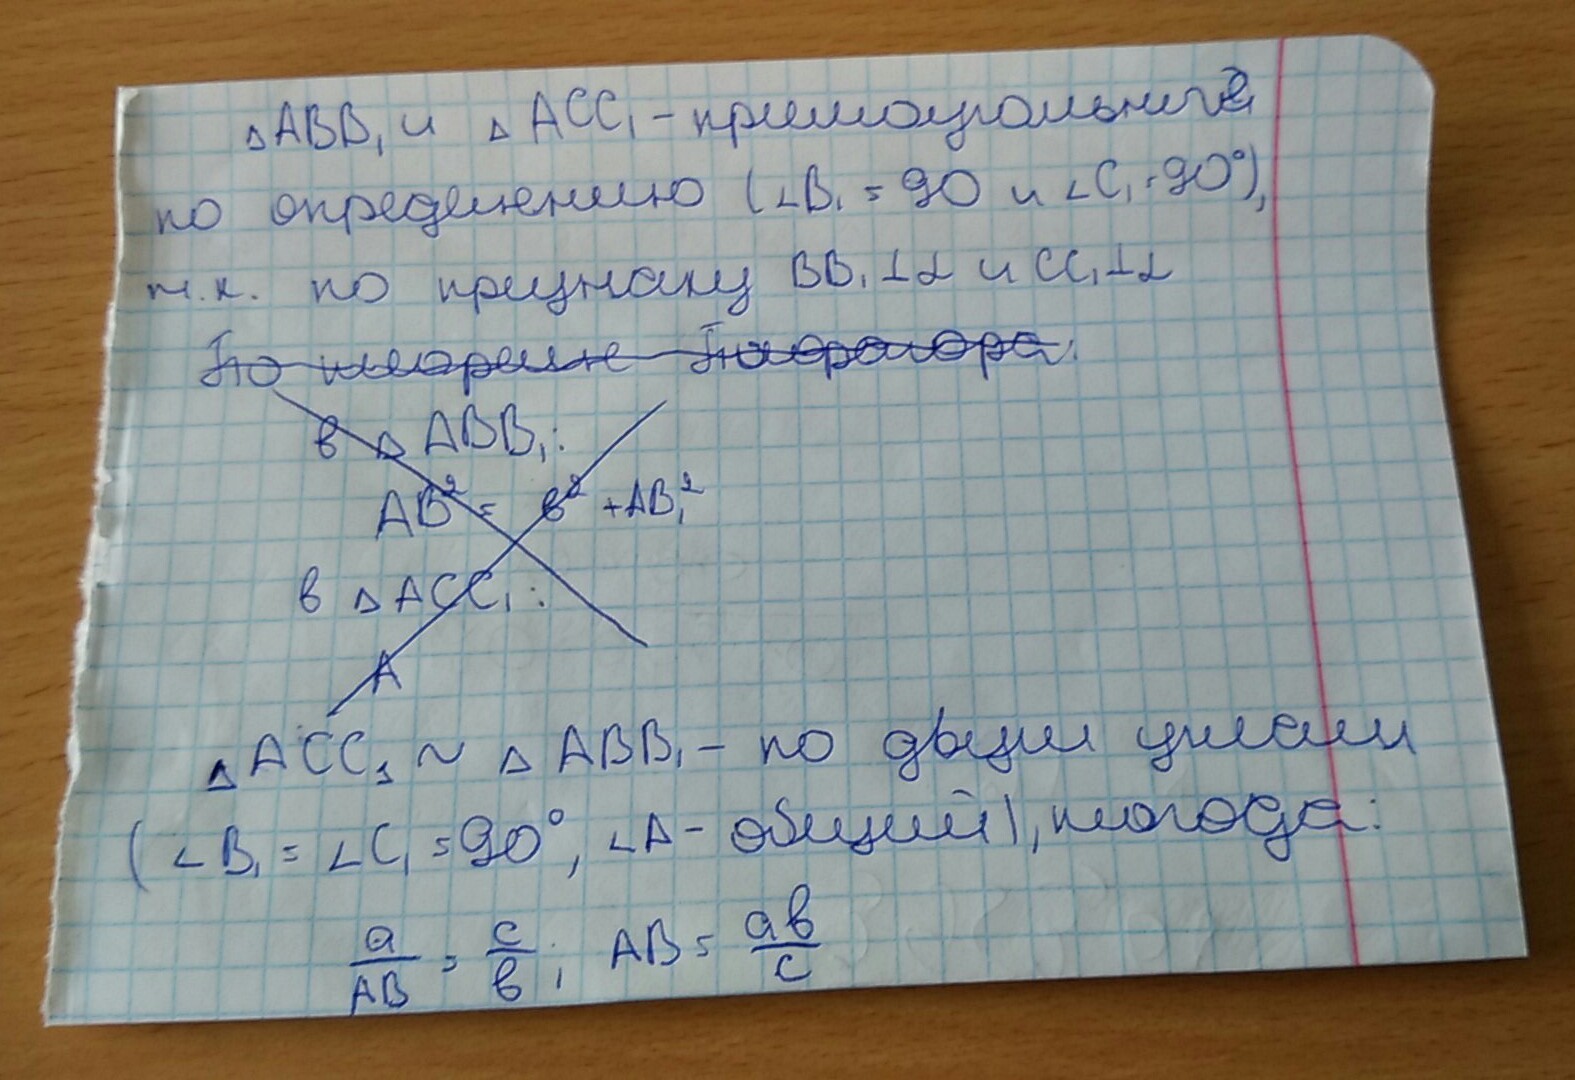 △ABB₁ и △ACC₁ - прямоугольные
по определению (∠B₁ = 90 и ∠C₁ = 90°),
т.к. по признаку BB₁⊥α и CC₁⊥α
По теореме Пифагора:
в △ABB₁:
AB² = в² + AB₁²
в △ACC₁:
A
△ACC₁ ~ △ABB₁ - по двум углам
(∠B₁ = ∠C₁ = 90°, ∠A - общий), тогда:
a/AB = c/в; AB = aв/c